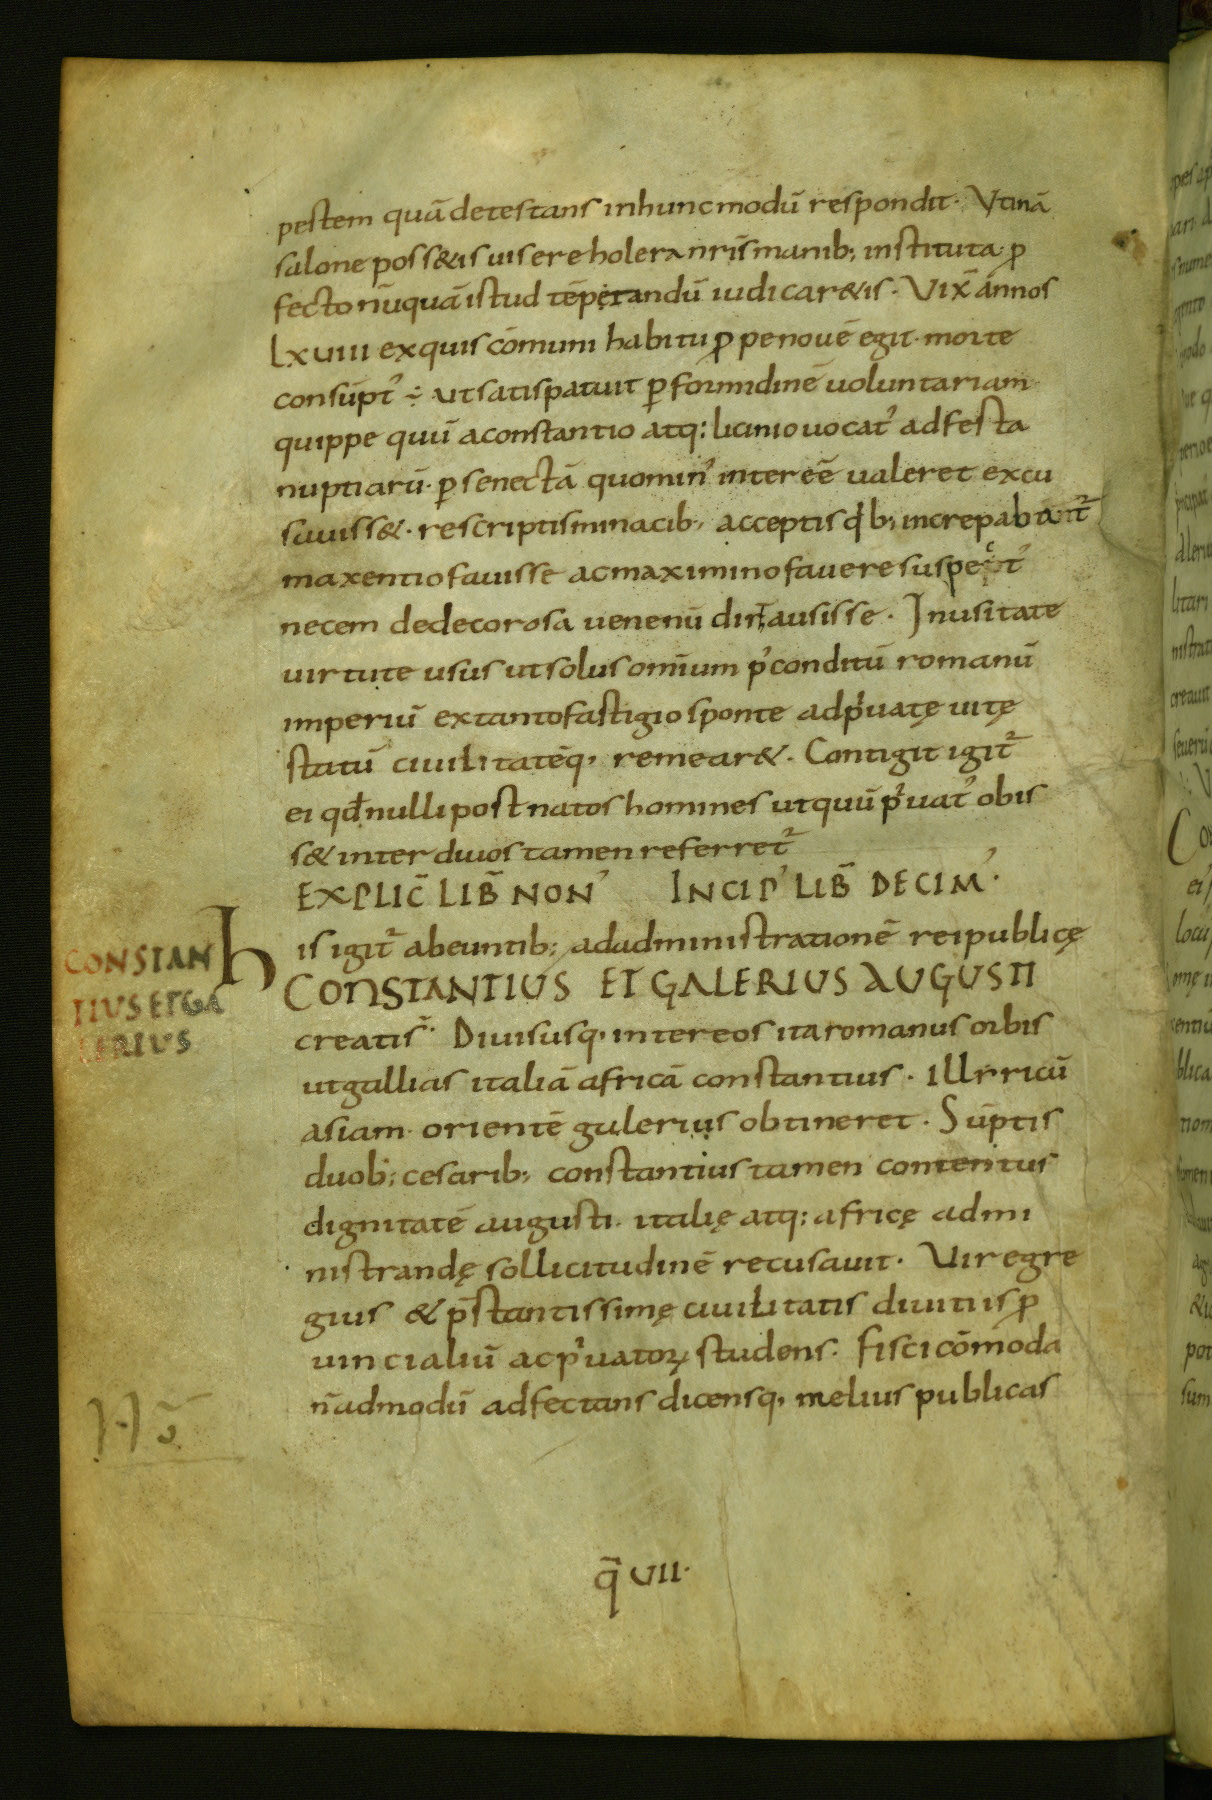 pestem quā detestans inhuncmodū respondit. Vtinā
salone poss&is uisere holera nrīs manib; instituta. ꝓ
fecto nūquā istud tēperandū iudicar&is. Vix̄ ānnos
lxuiii exquis cōmuni habitu ꝓpe nouē egit. morte
consūpt᾽ ÷ utsatispatuit ꝑformidinē uoluntariam
quippe quū aconstantio atq; licinio uocat᾽ adfesta
nuptiarū. ꝑ senectā quomin᾽ intereē ualeret excu
sauiss&. rescriptisminacib; acceptis qͥb; increpabatr̄
maxentio fauisse acmaximino fauere suspect᾽
necem dedecorosa uenenū dir̄ausisse. Inusitate
uirtute usus utsolus omīum p᾽conditū romanū
imperiū extantofastigio sponte adpͥuatę uitę
statū ciuilitatēq; remear&. Contigit igitr̄
ei qđnulli post natos homines utquū pͥuat᾽ obis
s& inter duios tamen referretr̄
EXPLIC̄ LIB̄ NON᾽ INCIP᾽ LIB̄ DECIM᾽.
his igitr̄ abeuntib; adadministrationē reipublicę
CONSTANTIUS ET GALERIUS AUGUSTI
CONSTAN
TIUS ET GA
LERIUS
creatis̄. Diuisusq; intereos ita romanus orbis
utgallias italiā africā constantius. illrricū
asiam. orientē galerius obtineret. Sūptis
duob; cesarib; constantius tamen contentus
dignitatē augusti. italię atq; africę admi
nistrandę sollicitudinē recusauit. Vir egre
gius & p̄stantissimę ciuilitatis diuitiis ꝓ
uincialiū acpͥuatoꝝ studens. fisci cōmoda
n̄admodū adfectans dicensq; melius publicas
q̄ VII.